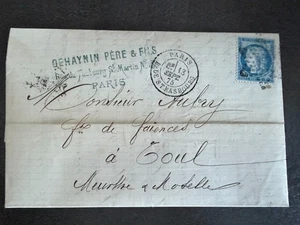 DEHAYNIN PÈRE & FILS
Faubourg St Martin
PARIS
PARIS
R. DE STRASBOURG
Monsieur Aubry
ft de faïences
à Toul
Meurthe & Moselle